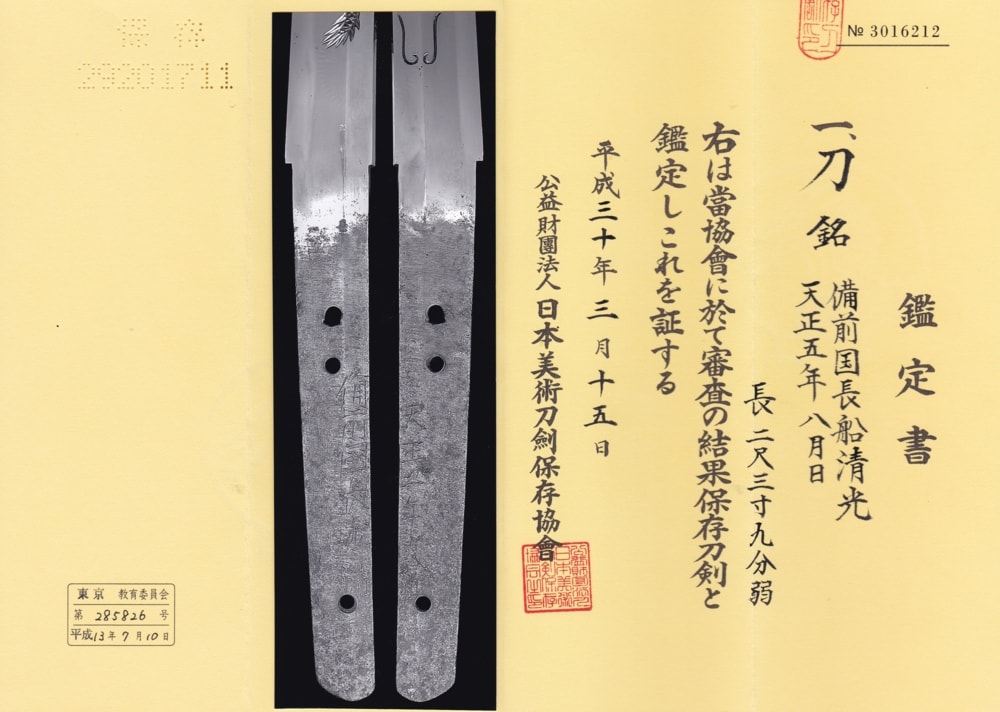 № 3016212
鑑定書
一、刀 銘 備前国長船清光
天正五年八月日
長 二尺三寸九分弱
右は當協會に於て審査の結果保存刀剣と
鑑定しこれを証する
平成三十年三月十五日
公益財團法人 日本美術刀劍保存協會
保存
29201711
東京 教育委員会
第 285826 号
平成13年7月10日